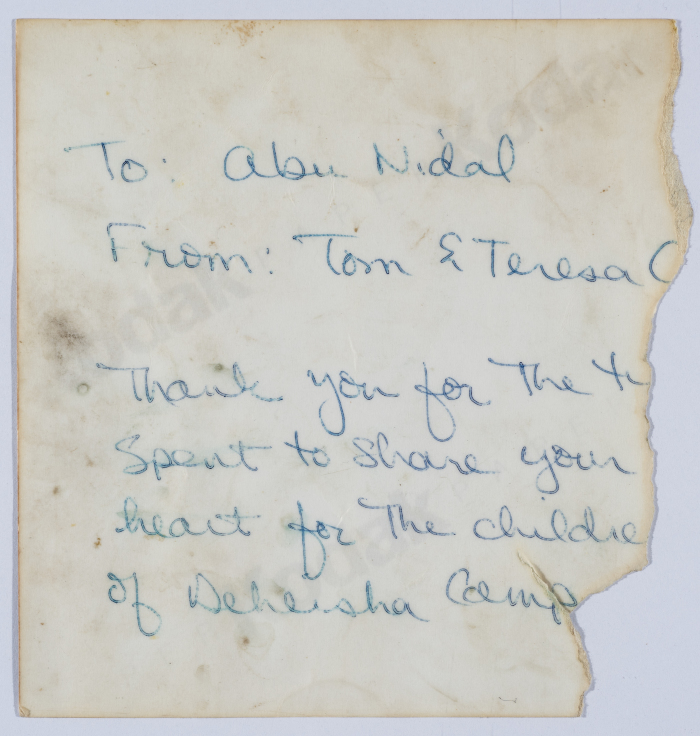 To: Abu Nidal
From: Tom & Teresa C
Thank you for The
Spent to Share your
heart for The childre
of Deheisha Camp
Kodak
Kodak
Kodak